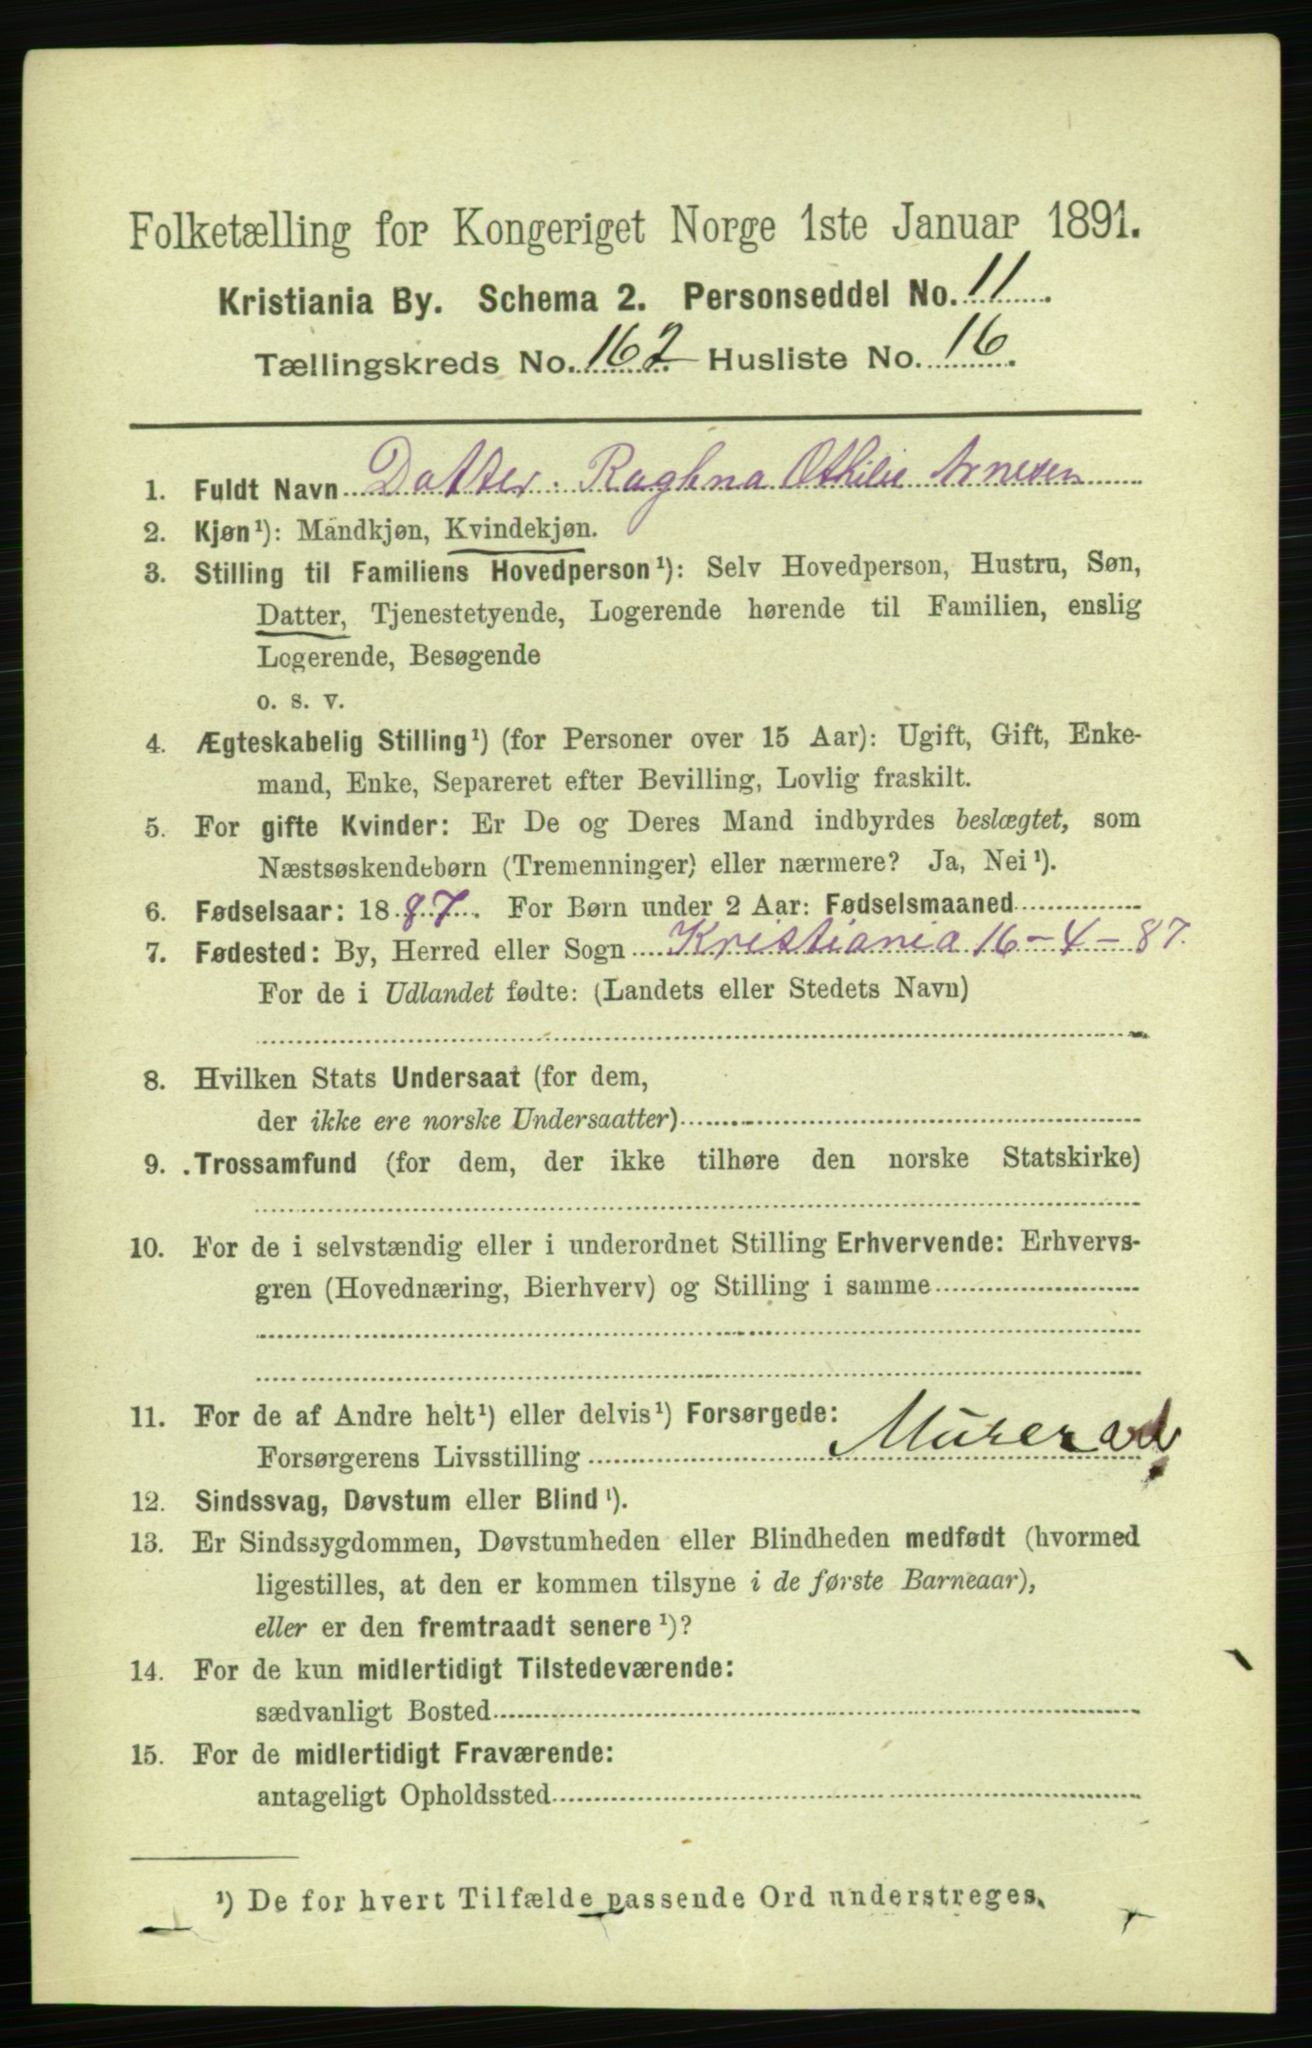 Folketælling for Kongeriget Norge 1ste Januar 1891.
Kristiania By. Schema 2. Personseddel No. 11
Tællingskreds No. 162 Husliste No. 16.
1. Fuldt Navn Datter. Raghna Othilie Arnesen
2. Kjøn¹): Mandkjøn, Kvindekjøn.
3. Stilling til Familiens Hovedperson¹): Selv Hovedperson, Hustru, Søn,
Datter, Tjenestetyende, Logerende hørende til Familien, enslig
Logerende, Besøgende
o. s. v.
4. Ægteskabelig Stilling¹) (for Personer over 15 Aar): Ugift, Gift, Enke-
mand, Enke, Separeret efter Bevilling, Lovlig fraskilt.
5. For gifte Kvinder: Er De og Deres Mand indbyrdes beslægtet, som
Næstsøskendebørn (Tremenninger) eller nærmere? Ja, Nei¹).
6. Fødselsaar: 1887. For Børn under 2 Aar: Fødselsmaaned
7. Fødested: By, Herred eller Sogn Kristiania 16-4-87.
For de i Udlandet fødte: (Landets eller Stedets Navn)
8. Hvilken Stats Undersaat (for dem,
der ikke ere norske Undersaatter)
9. Trossamfund (for dem, der ikke tilhøre den norske Statskirke)
10. For de i selvstændig eller i underordnet Stilling Erhvervende: Erhvervs-
gren (Hovednæring, Bierhverv) og Stilling i samme
11. For de af Andre helt¹) eller delvis¹) Forsørgede:
Forsørgerens Livsstilling Murer
12. Sindssvag, Døvstum eller Blind¹).
13. Er Sindssygdommen, Døvstumheden eller Blindheden medfødt (hvormed
ligestilles, at den er kommen tilsyne i de første Barneaar),
eller er den fremtraadt senere¹)?
14. For de kun midlertidigt Tilstedeværende:
sædvanligt Bosted
15. For de midlertidigt Fraværende:
antageligt Opholdssted
¹) De for hvert Tilfælde passende Ord understreges.